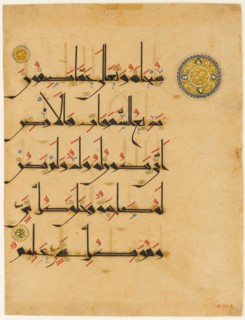 سبحنه وتعلى عما يصفون
بديع السموات والارض
انى يكون له ولد ولم تكن
له صاحبة وخلق كل شي
وهو بكل شي عليم